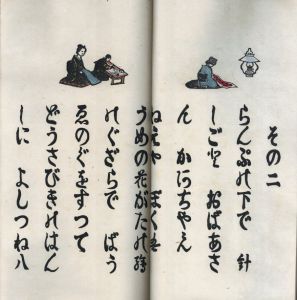 その二
らんぷの下で 針
しごと おばあさ
ん かあちやん
ねえや ぼくも
うめの花がたの
のぐざらで ばう
ゑのぐをすつて
どうさびきのはん
しに よしつね八